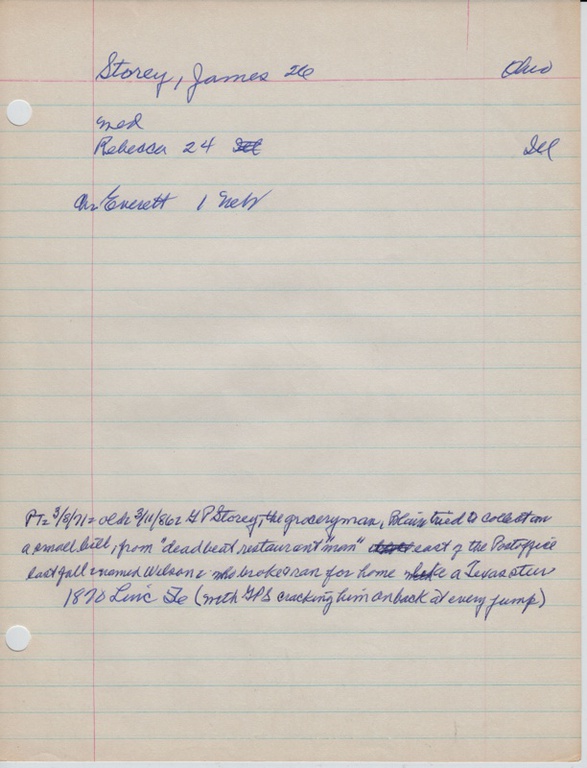 Storey, James 26 Ohio
med
Rebecca 24 Ill
Ch= Everett 1 Neb
PT= 3/8/71= 3/11/86= G P Storey, the groceryman, Blair tried to collect on
a small bill, from "dead beat restaurant "man" east of the Postoffice
last fall = named Wilson = who broke & ran for home like a Texas steer
1870 (with GPS cracking him on back at every jump)